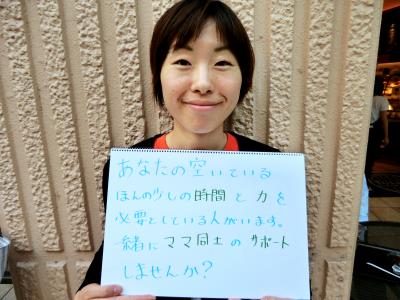 あなたの空いている
ほんの少しの時間と力を
必要としている人がいます。
一緒にママ同士のサポート
しませんか?